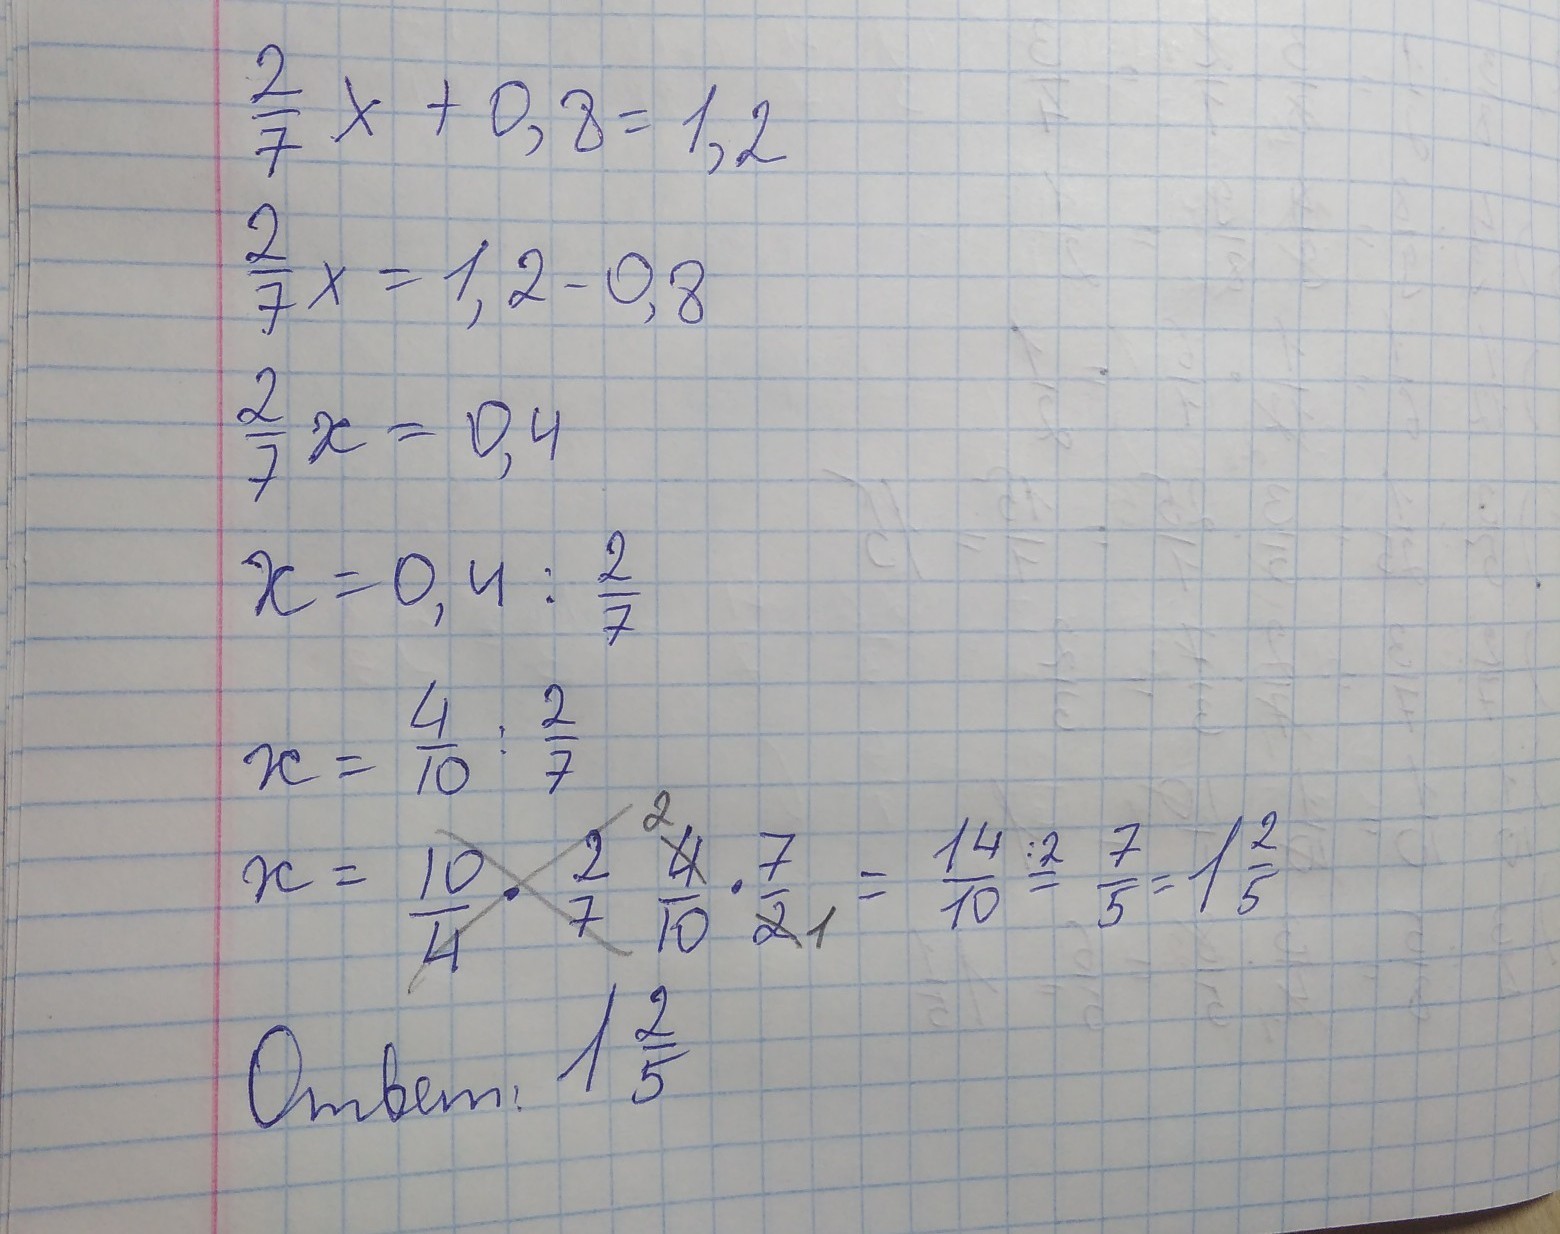 2/7 x + 0,8 = 1,2
2/7 x = 1,2 - 0,8
2/7 x = 0,4
x = 0,4 : 2/7
x = 4/10 : 2/7
x = 10/4 · 2/7 4/10 · 7/2 = 14/10 = 7/5 = 1 2/5
2 1 :2
Ответ: 1 2/5